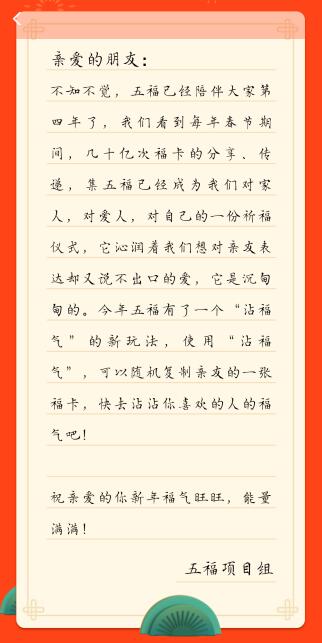 亲爱的朋友：
不知不觉，五福已经陪伴大家第
四年了，我们看到每年春节期
间，几十亿次福卡的分享、传
递，集五福已经成为我们对家
人，对爱人，对自己的一份祈福
仪式，它沁润着我们想对亲友表
达却又说不出口的爱，它是沉甸
甸的。今年五福有了一个“沾福
气”的新玩法，使用“沾福
气”，可以随机复制亲友的一张
福卡，快去沾沾你喜欢的人的福
气吧！
祝亲爱的你新年福气旺旺，能量
满满！
五福项目组